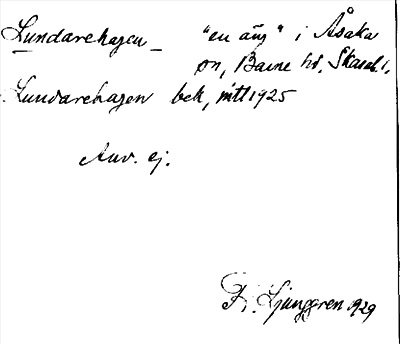 Lundarehagen – "en äng" i Åsaka
sn, Barne hd. Skarab. l.
Lundarehagen bek, mtl 1925
Anv. ej.
Fr. Ljunggren 1929